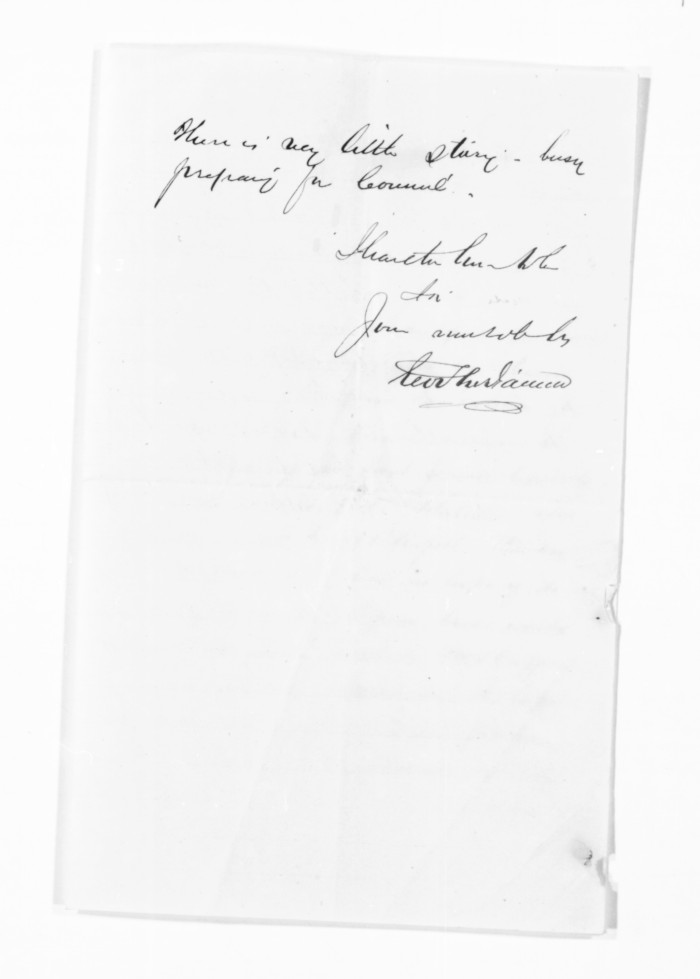 There is very little stirring - busy
preparing for Council.
I have the honor to be
Sir
Your most ob. Sv.